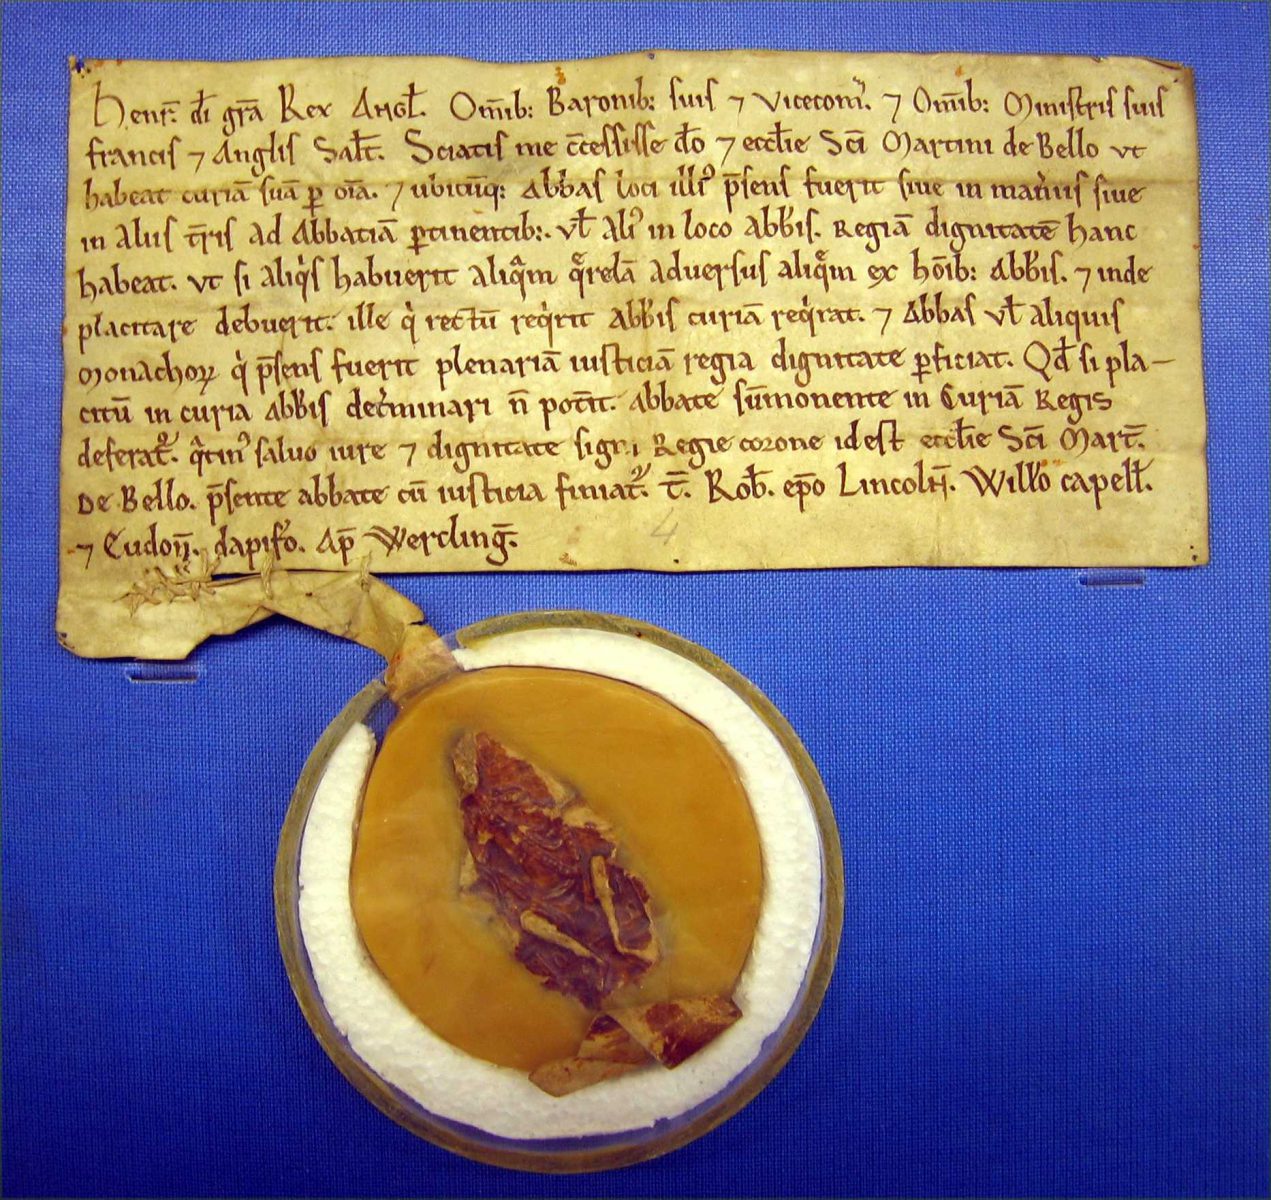 Henr̄. dī gr̄a Rex Angƚ. Om̄ib: Baronib: suis ⁊ Vicecom̄. ⁊ Om̄ib: Ministris suis
francis ⁊ Anglis Saƚt. Sciatis me c̄cessisse dō ⁊ eccƚie Sc̄i Martini de Bello vt
habeat curiā suā ꝑ oīa. ⁊ ubicūq: abƀas loci illiꝰ p̄sens fuerit siue in man̄iis siue
in aliis t̄ris ad Abbatiā ꝑtinentib:. vƚ aliꝰ in loco abƀis. Regiā dignitatē hanc
habeat. vt si aliqⁱs habuerit aliqᵃm q̄relā aduersus aliqᵉm ex hōib: abƀis. ⁊ inde
placitare debuerit. ille qⁱ rectū reqⁱrit abƀis curiā reqⁱrat. ⁊ Abƀas vƚ aliquis
monachoꝝ qⁱ p̄sens fuerit plenariā iusticiā regia dignitate ꝑficiat. Qđ si pla-
citū in curia abƀis det̄minari n̄ pot̄it. abbate sūmonente in Curiā Regis
deferat᷑. qᵃtinꝰ saluo iure ⁊ dignitate Regie corone idest eccƚie Sc̄i Mart̄.
De Bello. p̄sente abbate cū iusticia finiat᷑. t̄. Roƀ. ep̄o Lincolń. Willo capelƚ.
⁊ Eudoń. dapifo. Ap̄ Werclinḡ.
4